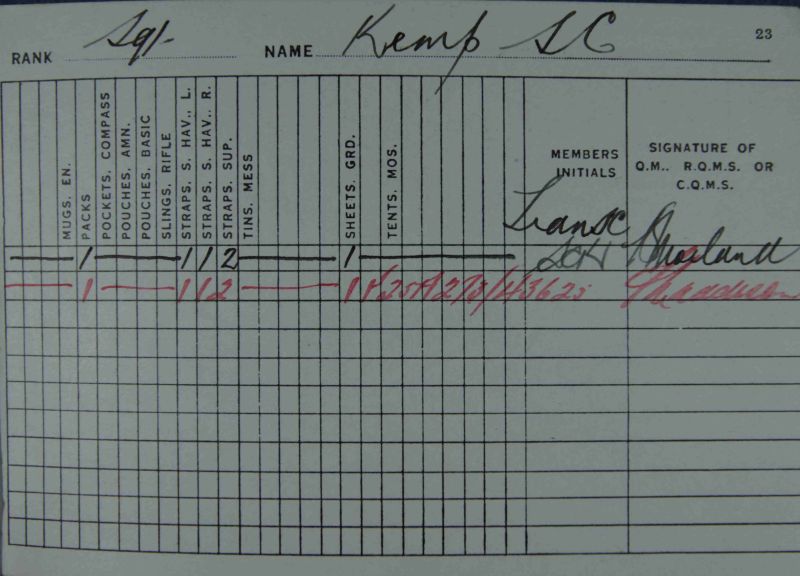 23
RANK Sgt NAME Kemp S C
MUGS. EN.
PACKS
POCKETS. COMPASS
POUCHES. AMN.
POUCHES. BASIC
SLINGS. RIFLE
STRAPS. S. HAV.. L.
STRAPS. S. HAV.. R.
STRAPS. SUP.
TINS. MESS
SHEETS. GRD.
TENTS. MOS.
MEMBERS INITIALS
SIGNATURE OF Q.M.. R.Q.M.S. OR C.Q.M.S.
1 1 1 2 1
1 1 1 2 1